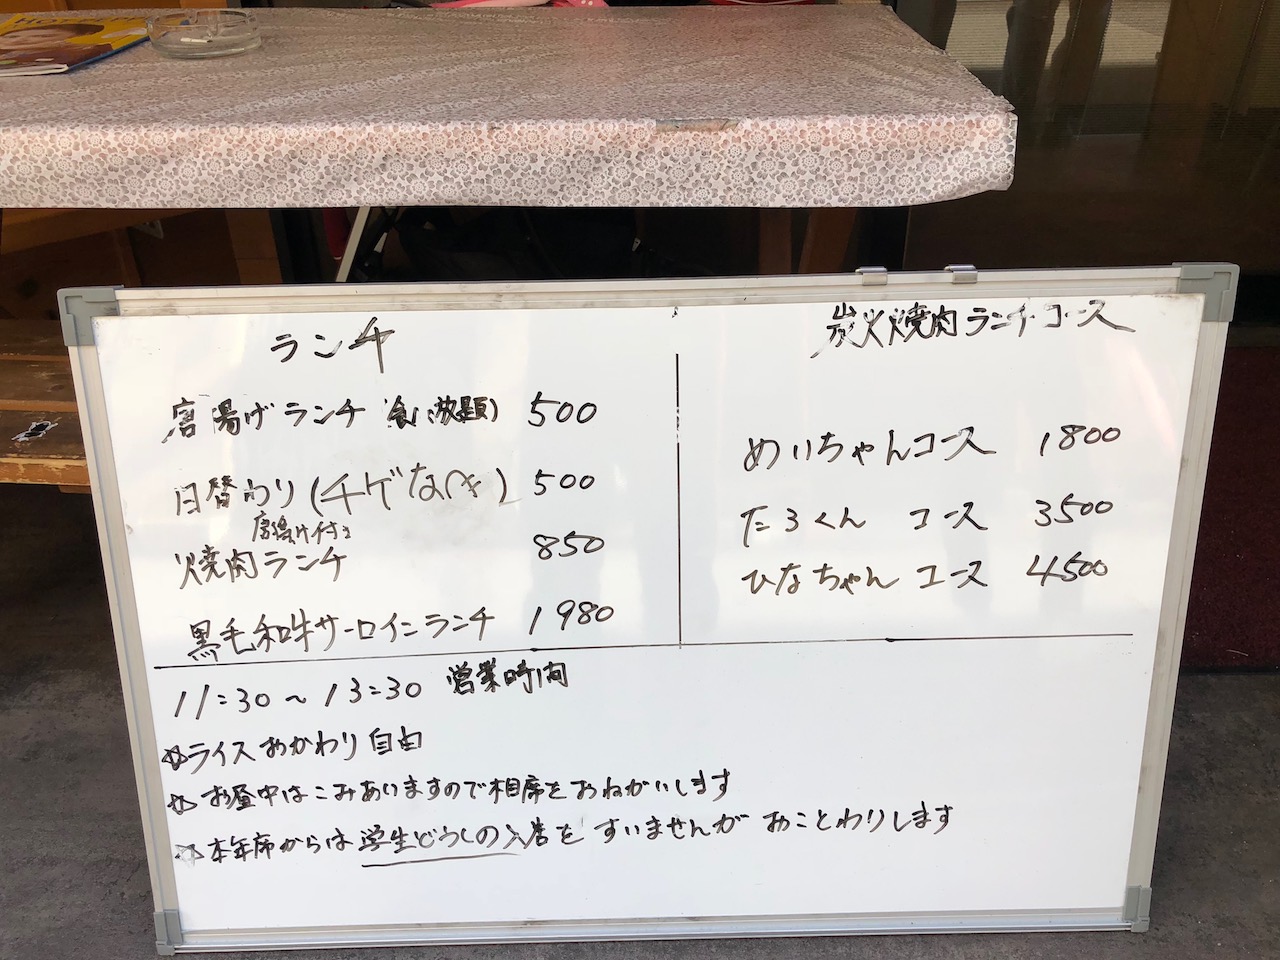 ランチ
唐揚げランチ (食い放題) 500
日替わり(チゲなべ) 500
唐揚げ付き
焼肉ランチ 850
黒毛和牛サーロインランチ 1980
炭火焼肉ランチコース
めいちゃんコース 1800
たろくん コース 3500
ひなちゃん コース 4500
11:30~13:30 営業時間
☆ライスおかわり自由
☆お昼中はこみあいますので相席をおねがいします
☆本年席からは学生どうしの入店をすいませんがおことわりします